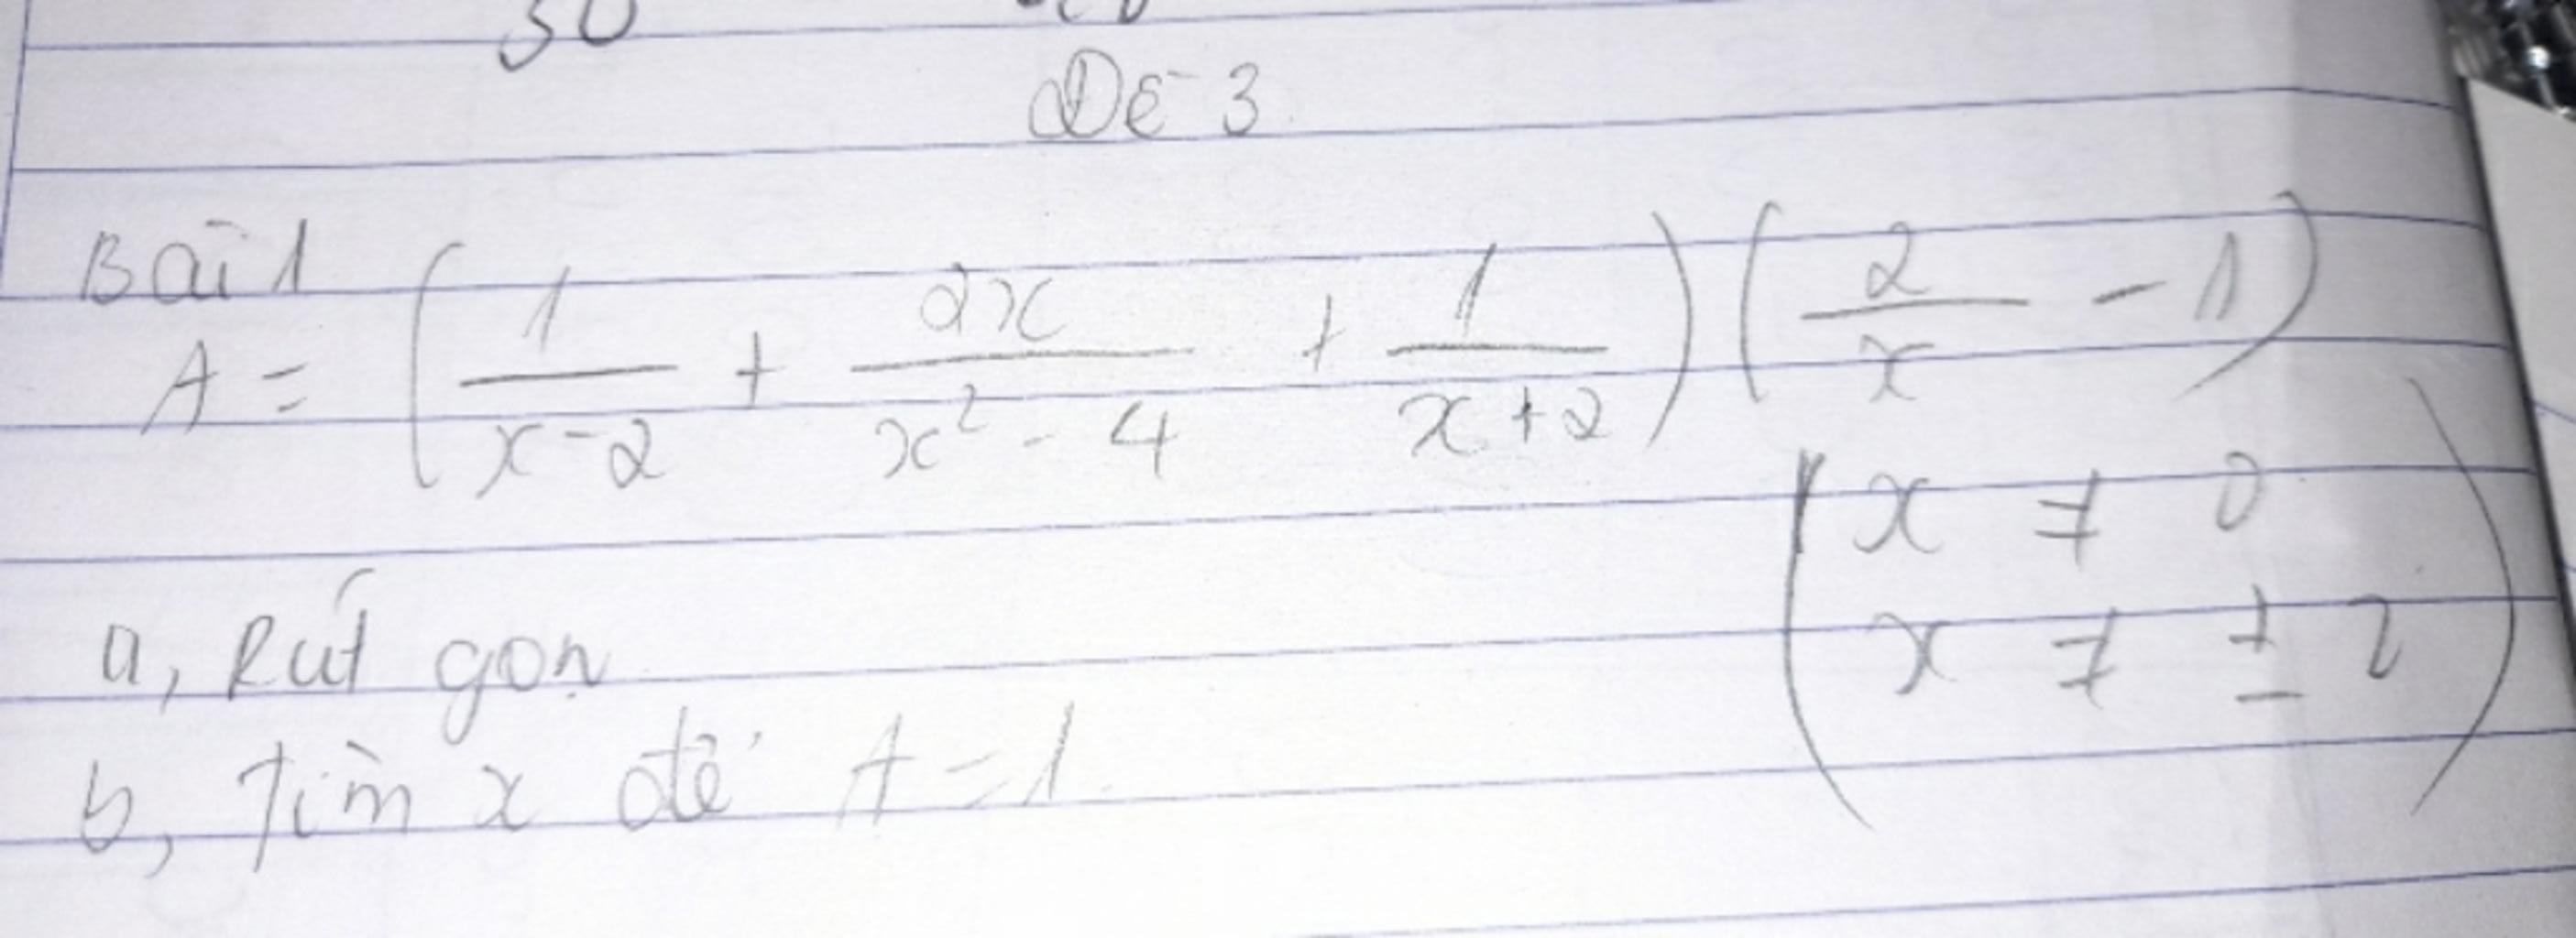 30
Đề 3
Bài 1
A = ( 1/(x-2) + 2x/(x² - 4) + 1/(x+2) ) ( 2/x - 1 )
( x ≠ 0
x ≠ ± 2 )
a, Rút gọn
b, Tìm x để A = 1.